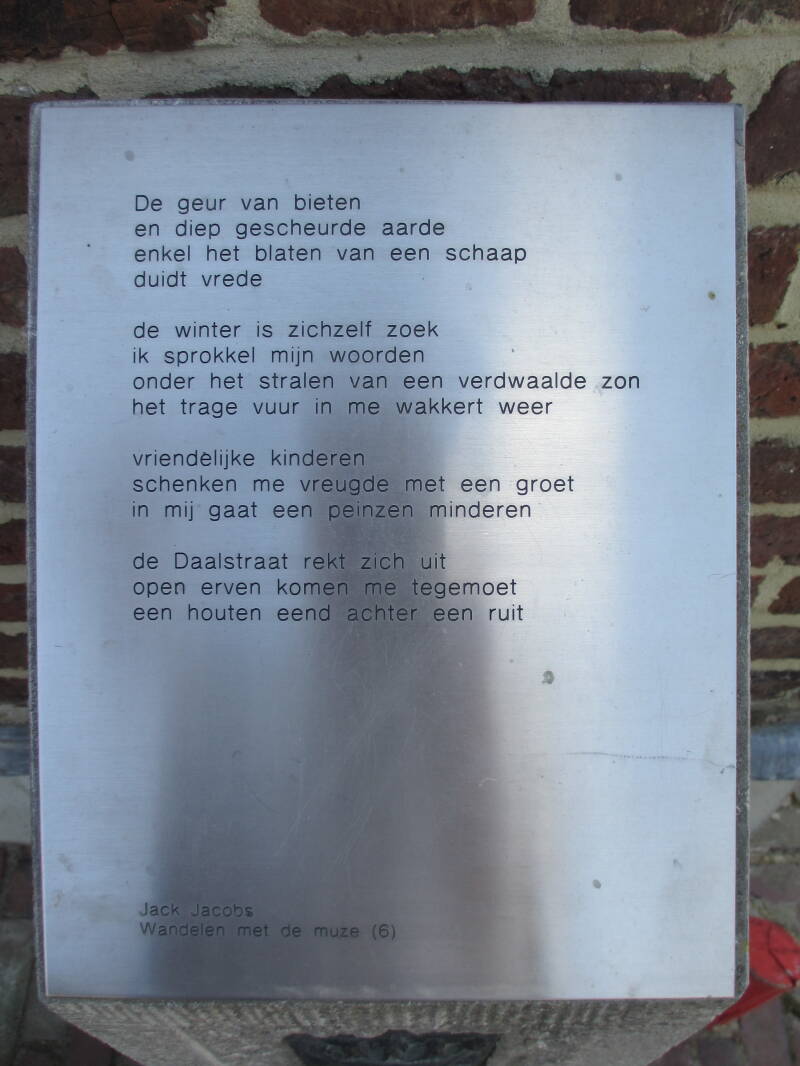 De geur van bieten
en diep gescheurde aarde
enkel het blaten van een schaap
duidt vrede
de winter is zichzelf zoek
ik sprokkel mijn woorden
onder het stralen van een verdwaalde zon
het trage vuur in me wakkert weer
vriendelijke kinderen
schenken me vreugde met een groet
in mij gaat een peinzen minderen
de Daalstraat rekt zich uit
open erven komen me tegemoet
een houten eend achter een ruit
Jack Jacobs
Wandelen met de muze (6)